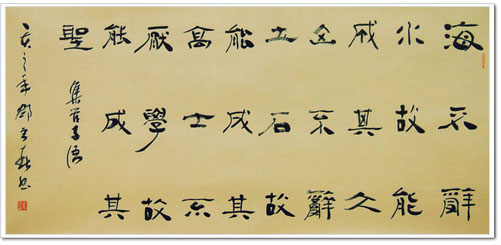 海不辭
水故能
成其大
山不辭
土石故
能成其
高士不
厭學故
能成其
聖
集管子语